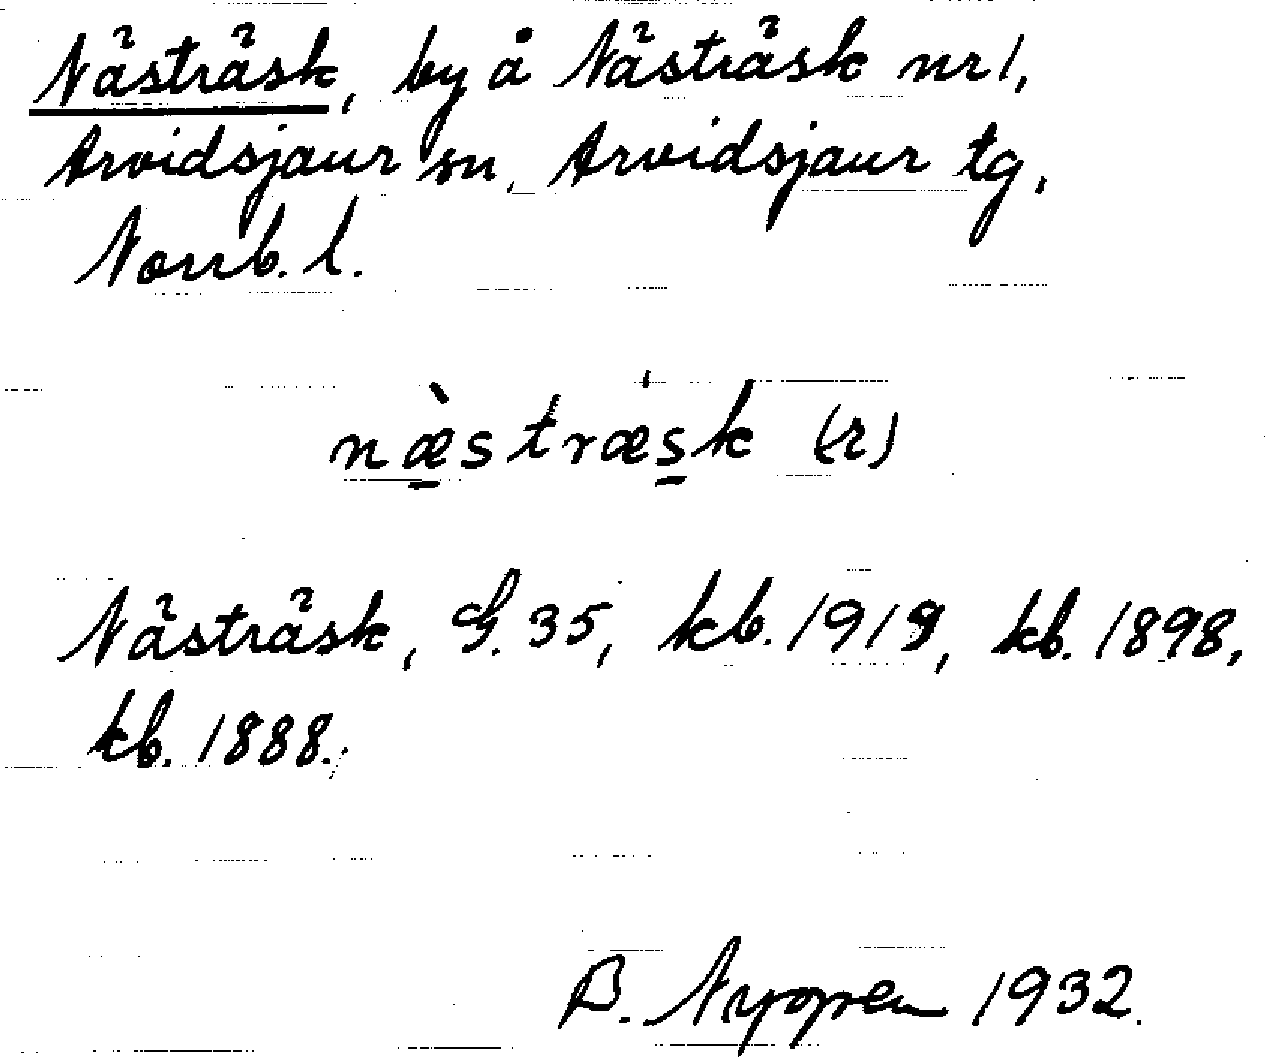 Nästräsk, by å Nästräsk nr 1,
Arvidsjaur sn, Arvidsjaur tg,
Norrb. l.
næ̀stræsk (r)
Nästräsk, G. 35, kb. 1919, kb. 1898,
kb. 1888.
B. 1932.